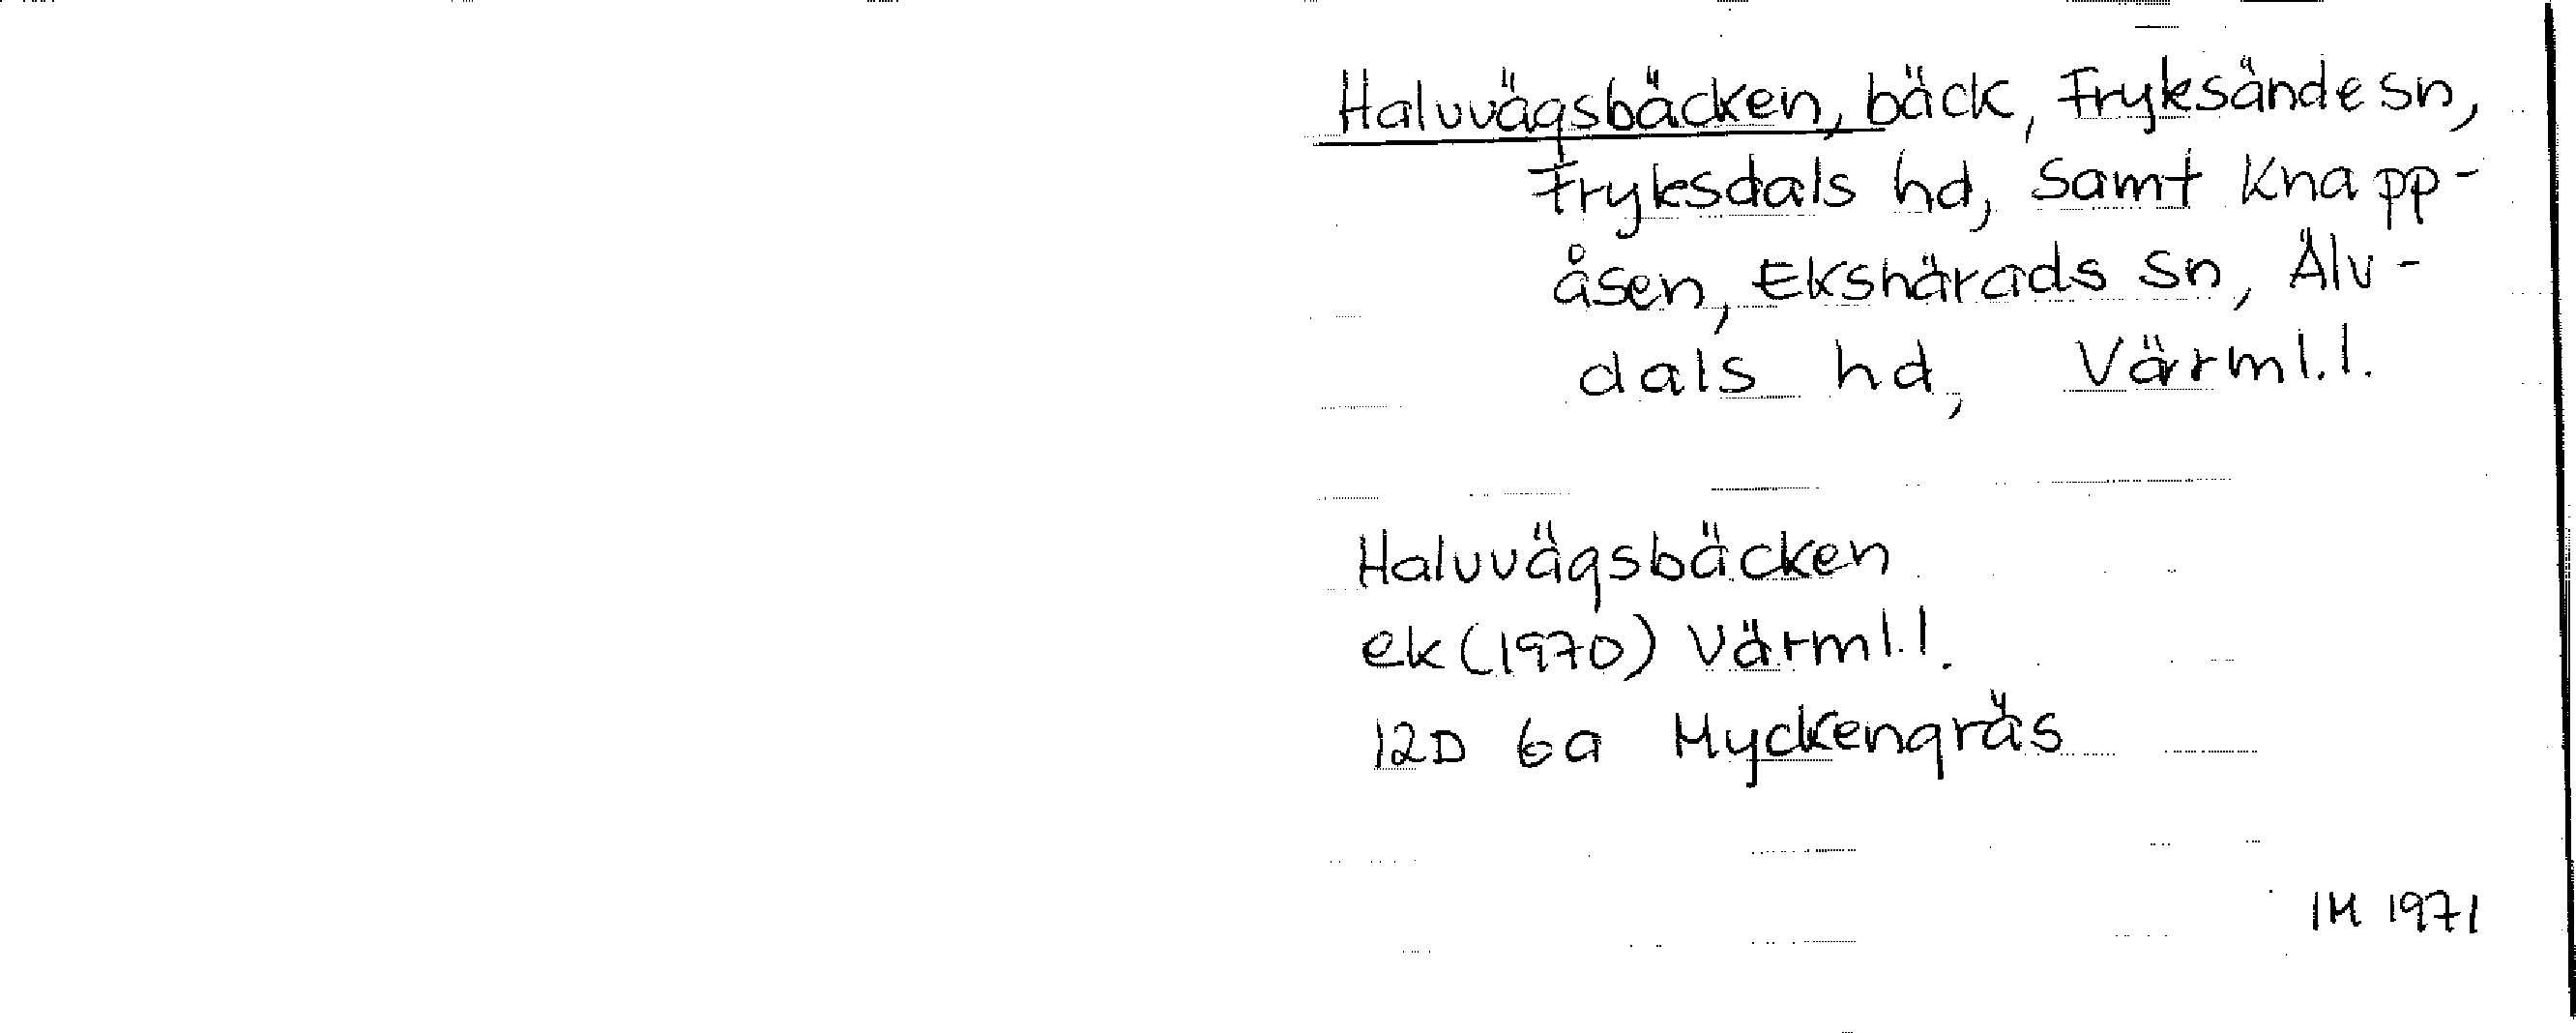 Halvvägsbäcken, bäck, Fryksände sn,
Fryksdals hd, samt Knapp-
åsen, Ekshärads sn, Älv-
dals hd, Värml.l.
Halvvägsbäcken
ek (1970) Värml.l.
12D 6a Myckengräs
IM 1971